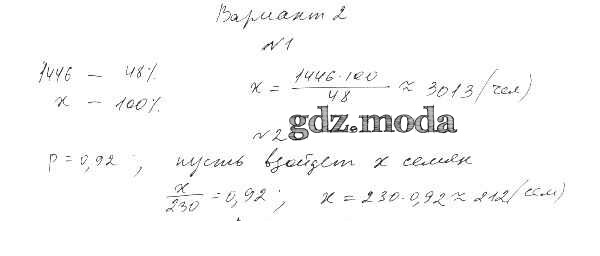 Вариант 2
№1
1446 – 48%
x – 100%
x = 1446·100 / 48 ≈ 3013 (чел)
№2
gdz.moda
p = 0,92 ; пусть взойдет x семян
x / 230 = 0,92 ; x = 230·0,92 ≈ 212 (сем)